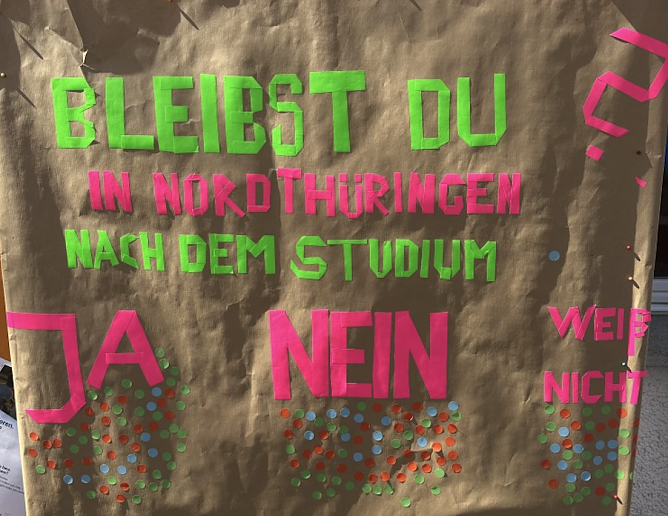 BLEIBST DU
IN NORDTHÜRINGEN
NACH DEM STUDIUM
?
JA NEIN WEIß
NICHT